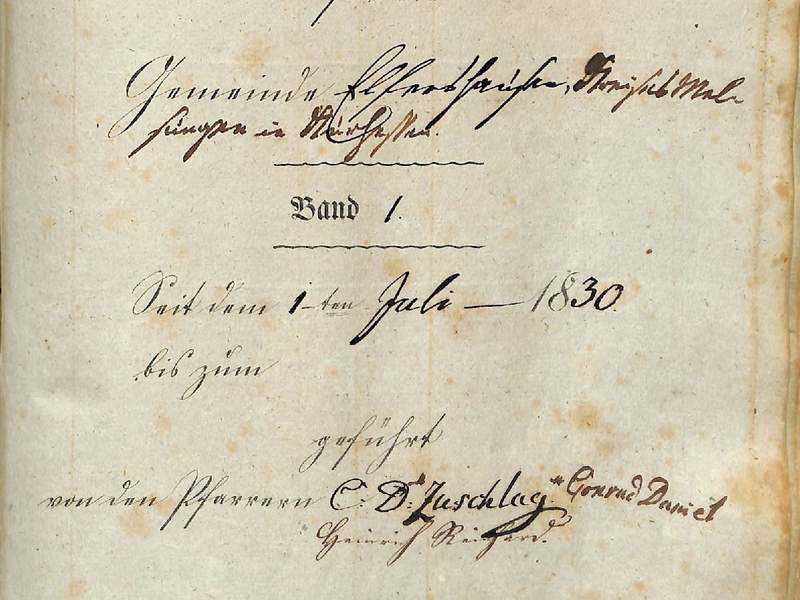 Gemeinde Elfershausen, Kreises Mel-
sungen in Kurhessen.
Band 1.
Seit dem 1-ten Juli — 1830.
bis zum
geführt
von den Pfarrern C. D. Zuschlag. * Conrad Daniel
Heinrich Reinhard.